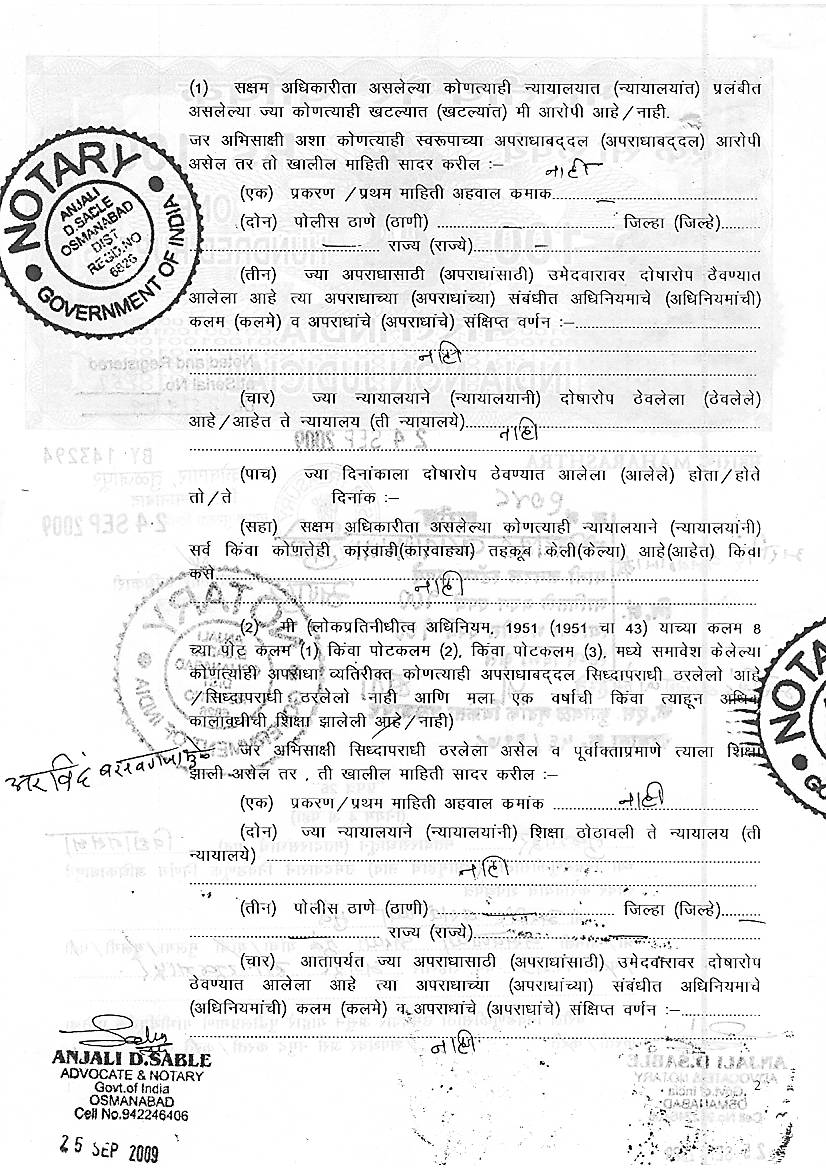 (1) सक्षम अधिकारीता असलेल्या कोणत्याही न्यायालयात (न्यायालयांत) प्रलंबीत
असलेल्या ज्या कोणत्याही खटल्यात (खटल्यांत) मी आरोपी आहे/नाही.
जर अभिसाक्षी अशा कोणत्याही स्वरूपाच्या अपराधाबद्दल (अपराधाबद्दल) आरोपी
असेल तर तो खालील माहिती सादर करील :– नाही
(एक) प्रकरण /प्रथम माहिती अहवाल कमाक
(दोन) पोलीस ठाणे (ठाणी) जिल्हा (जिल्हे)
राज्य (राज्ये)
(तीन) ज्या अपराधासाठी (अपराधांसाठी) उमेदवारावर दोषारोप ठेवण्यात
आलेला आहे त्या अपराधाच्या (अपराधांच्या) संबंधीत अधिनियमाचे (अधिनियमांची)
कलम (कलमे) व अपराधांचे (अपराधांचे) संक्षिप्त वर्णन :–
नाही
(चार) ज्या न्यायालयाने (न्यायालयानी) दोषारोप ठेवलेला (ठेवलेले)
आहे/आहेत ते न्यायालय (ती न्यायालये) नाही
(पाच) ज्या दिनांकाला दोषारोप ठेवण्यात आलेला (आलेले) होता/होते
तो/ते दिनांक :–
(सहा) सक्षम अधिकारीता असलेल्या कोणत्याही न्यायालयाने (न्यायालयांनी)
सर्व किंवा कोणतेही कारवाही(कारवाह्या) तहकूब केली(केल्या) आहे(आहेत) किंवा
कसे नाही
(2) मी (लोकप्रतिनीधीत्व अधिनियम, 1951 (1951 चा 43) याच्या कलम 8
च्या पोट कलम (1) किंवा पोटकलम (2), किंवा पोटकलम (3), मध्ये समावेश केलेल्या
कोणत्याही अपराधा व्यतिरीक्त कोणत्याही अपराधाबद्दल सिध्दापराधी ठरलेलो आहे
/सिध्दापराधी ठरलेलो नाही आणि मला एक वर्षाची किंवा त्याहून अधिक
कालावधीची शिक्षा झालेली आहे/नाही)
जर अभिसाक्षी सिध्दापराधी ठरलेला असेल व पूर्वाक्ताप्रमाणे त्याला शिक्षा
झाली असेल तर , ती खालील माहिती सादर करील :–
(एक) प्रकरण/प्रथम माहिती अहवाल कमांक नाही
(दोन) ज्या न्यायालयाने (न्यायालयांनी) शिक्षा ठोठावली ते न्यायालय (ती
न्यायालये)
नाही
(तीन) पोलीस ठाणे (ठाणी) जिल्हा (जिल्हे)
राज्य (राज्ये)
(चार) आतापर्यत ज्या अपराधासाठी (अपराधांसाठी) उमेदवारावर दोषारोप
ठेवण्यात आलेला आहे त्या अपराधाच्या (अपराधांच्या) संबंधीत अधिनियमाचे
(अधिनियमांची) कलम (कलमे) व अपराधांचे (अपराधांचे) संक्षिप्त वर्णन :–
नाही
2
NOTARY
GOVERNMENT OF INDIA
ANJALI
D.SACLE
OSMANABAD
DIST
REGD.NO
6826
अरविंद
ANJALI D.SABLE
ADVOCATE & NOTARY
Govt.of India
OSMANABAD
Cell No.942246406
25 SEP 2009